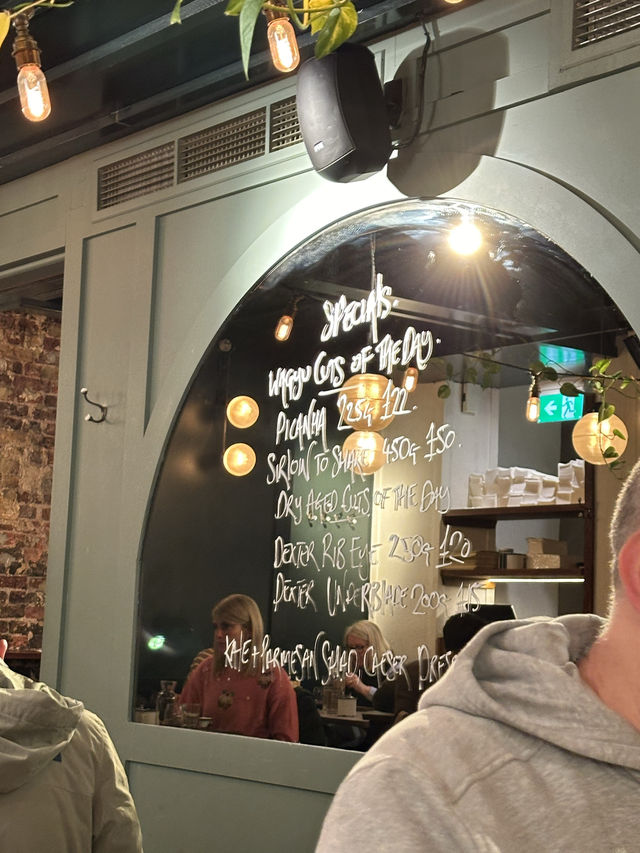 SPECIALS.
WAGYU CUTS OF THE DAY.
PICANHA 225G
SIRLOIN TO SHARE 450G
DRY AGED CUTS OF THE DAY
DEXTER RIB EYE 250G
DEXTER UNDERBLADE 200G
KALE + PARMESAN SALAD, CAESER